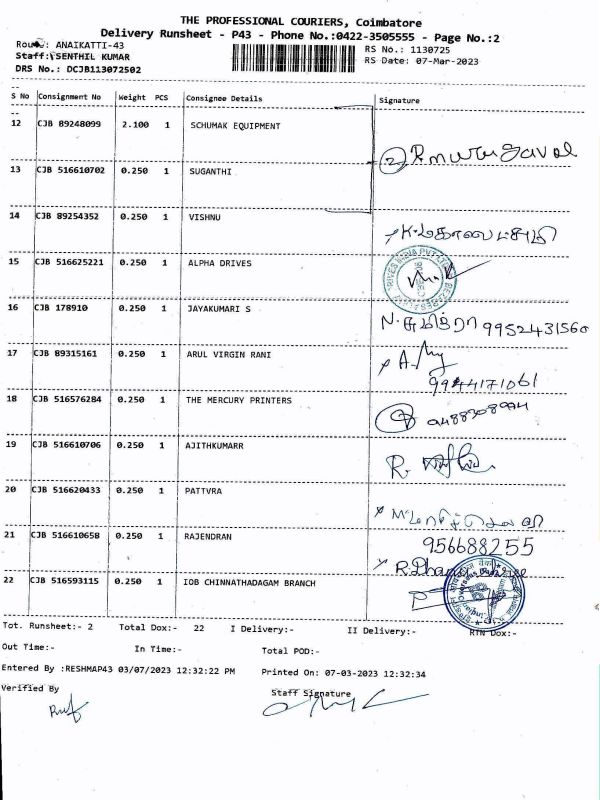 THE PROFESSIONAL COURIERS, Coimbatore
Delivery Runsheet - P43 - Phone No.:0422-3505555 - Page No.:2
Route: ANAIKATTI-43
RS No.: 1130725
Staff: SENTHIL KUMAR
RS Date: 07-Mar-2023
DRS No.: DCJB113072502
S No Consignment No Weight PCS Consignee Details Signature
12 CJB 89248099 2.100 1 SCHUMAK EQUIPMENT
13 CJB 516610702 0.250 1 SUGANTHI
14 CJB 89254352 0.250 1 VISHNU
15 CJB 516625221 0.250 1 ALPHA DRIVES
16 CJB 178910 0.250 1 JAYAKUMARI S
9952431560
17 CJB 89315161 0.250 1 ARUL VIRGIN RANI
9944171061
18 CJB 516576284 0.250 1 THE MERCURY PRINTERS
19 CJB 516610706 0.250 1 AJITHKUMARR
20 CJB 516620433 0.250 1 PATTVRA
21 CJB 516610658 0.250 1 RAJENDRAN
956688255
22 CJB 516593115 0.250 1 IOB CHINNATHADAGAM BRANCH
Tot. Runsheet:- 2 Total Dox:- 22 I Delivery:- II Delivery:- RTN Dox:-
Out Time:- In Time:- Total POD:-
Entered By :RESHMAP43 03/07/2023 12:32:22 PM Printed On: 07-03-2023 12:32:34
Verified By Staff Signature